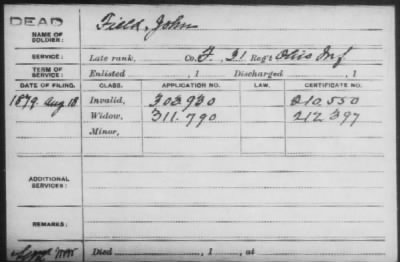 DEAD
NAME OF SOLDIER: Field, John
SERVICE: Late rank, Co. F, 21 Reg't Ohio Inf
TERM OF SERVICE: Enlisted , 1 Discharged , 1
DATE OF FILING. CLASS. APPLICATION NO. LAW. CERTIFICATE NO.
1879. Aug 18. Invalid, 303,930 210,550
Widow, 311,790 212,397
Minor,
ADDITIONAL SERVICES:
REMARKS:
Died , 1 , at